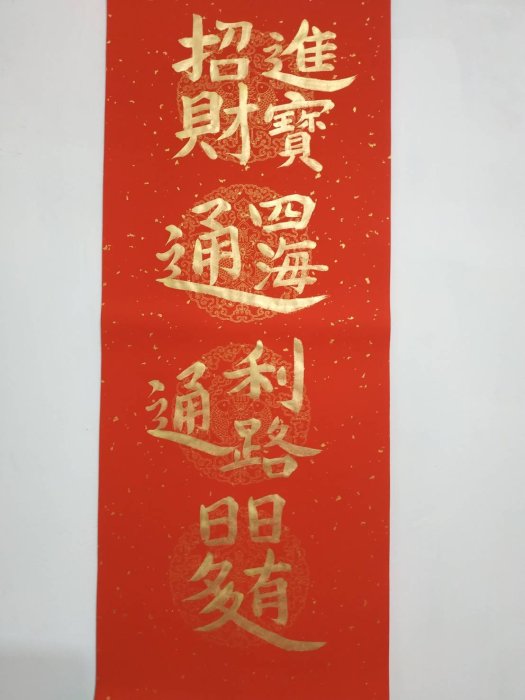 招財進寶
四海通
利路通
日日有多